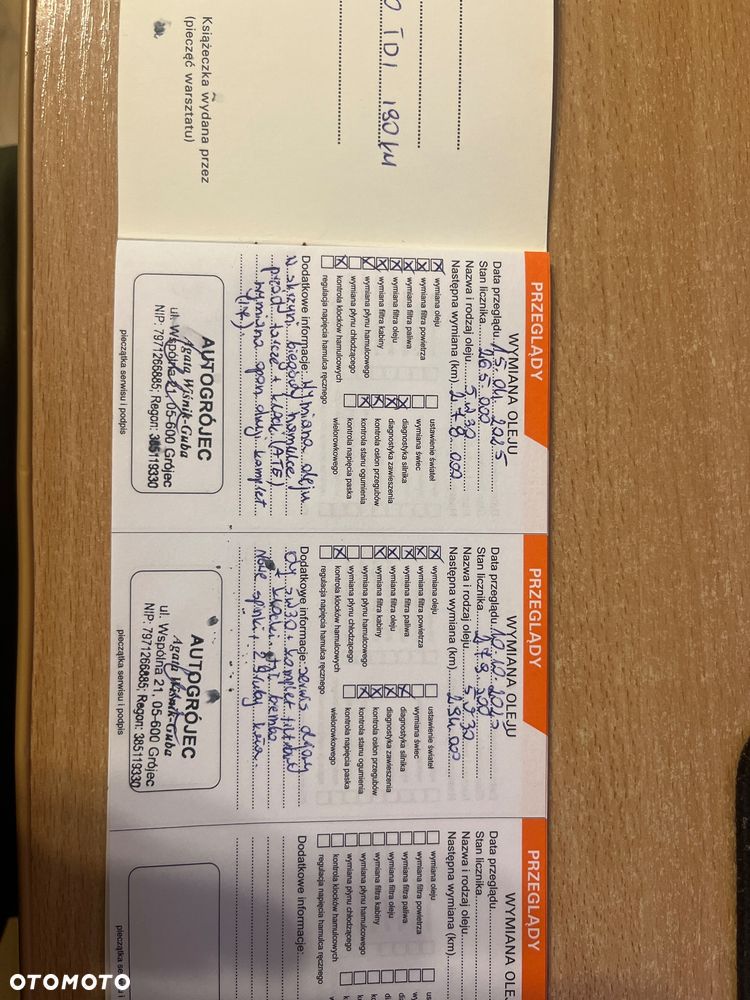 TDI 190 kM
Książeczka wydana przez
(pieczęć warsztatu)
PRZEGLĄDY
WYMIANA OLEJU
Data przeglądu 15.01.2025
Stan licznika 265.000
Nazwa i rodzaj oleju 5W30
Następna wymiana (km) 278 000
wymiana oleju
wymiana filtra powietrza
wymiana filtra paliwa
wymiana filtra oleju
wymiana filtra kabiny
wymiana płynu hamulcowego
wymiana płynu chłodzącego
kontrola klocków hamulcowych
regulacja napięcia hamulca ręcznego
ustawienie świateł
wymiana świec
diagnostyka silnika
diagnostyka zawieszenia
kontrola osłon przegubów
kontrola stanu ogumienia
kontrola napięcia paska
wielorowkowego
Dodatkowe informacje: Wymiana oleju
w skrzyni biegów, hamulce
przód tarcze + klocki (ATE)
wymiana opon duży komplet
AUTOGRÓJEC
Agata Wiśnik-Guba
ul. Wspólna 21, 05-600 Grójec
NIP: 7971266885; Regon: 385119330
pieczątka serwisu i podpis
PRZEGLĄDY
WYMIANA OLEJU
Data przeglądu 10.10.2025
Stan licznika 279 200
Nazwa i rodzaj oleju 5W30
Następna wymiana (km) 294.000
wymiana oleju
wymiana filtra powietrza
wymiana filtra paliwa
wymiana filtra oleju
wymiana filtra kabiny
wymiana płynu hamulcowego
wymiana płynu chłodzącego
kontrola klocków hamulcowych
regulacja napięcia hamulca ręcznego
ustawienie świateł
wymiana świec
diagnostyka silnika
diagnostyka zawieszenia
kontrola osłon przegubów
kontrola stanu ogumienia
kontrola napięcia paska
wielorowkowego
Dodatkowe informacje: serwis
5W30 + komplet filtrów
+ klocki tył brembo
Nowe spinki + śruby
AUTOGRÓJEC
Agata Wiśnik-Guba
ul. Wspólna 21, 05-600 Grójec
NIP: 7971266885; Regon: 385119330
pieczątka serwisu i podpis
PRZEGLĄDY
WYMIANA OLE
Data przeglądu
Stan licznika
Nazwa i rodzaj oleju
Następna wymiana (km)
wymiana oleju
wymiana filtra powietrza
wymiana filtra paliwa
wymiana filtra oleju
wymiana filtra kabiny
wymiana płynu hamulcowego
wymiana płynu chłodzącego
kontrola klocków hamulcowych
regulacja napięcia hamulca ręcznego
Dodatkowe informacje:
pieczątka se
OTOMOTO